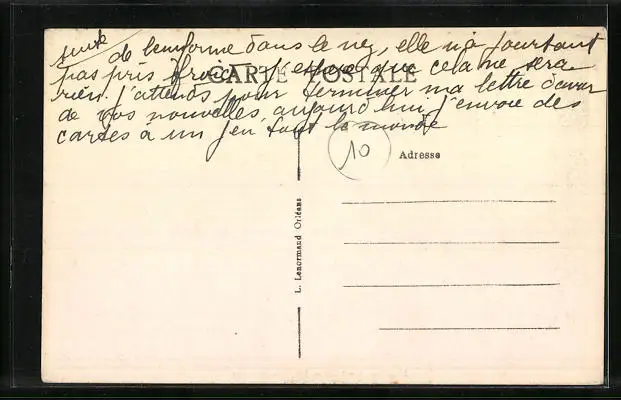 suite de l'enforme dans le nez, elle n'a pourtant
pas pris froid j'espère que cela ne sera
rien. j'attends pour terminer ma lettre d'avoir
de vos nouvelles, aujourd'hui j'envoie des
cartes à un peu tout le monde
CARTE POSTALE
10
Adresse
L. Lenormand Orléans